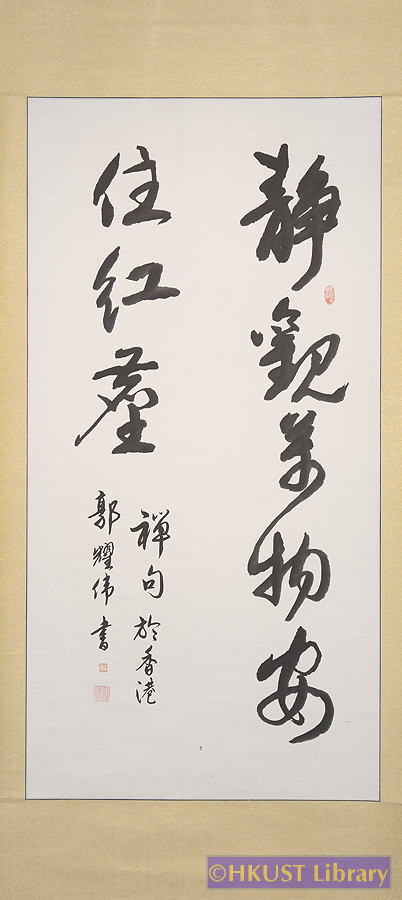 靜觀萬物安
住紅塵
禪句於香港
郭耀偉書
©HKUST Library